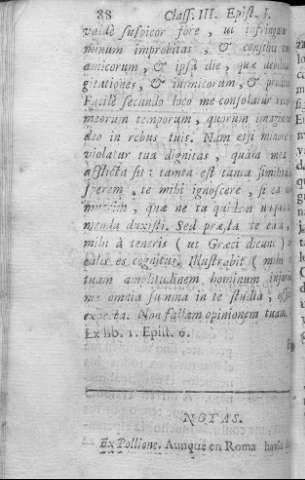 88 Class. III. Epist. 5.
valdè suspicor fore, ut infringatur
minum improbitas, & consilia tuorum
amicorum, & ipsâ die, quæ debilitat
gitationes, & inimicorum, &
Facilè secundo loco me consolatur
meorum temporum, quorum imaginem
deo in rebus tuis. Nam etsi minore
violatur tua dignitas, quàm mea
afflicta sit: tamen est tanta similitudo
sperem, te mihi ignoscere, si ea
muerim, quæ ne tu quidem unquam
menda duxisti. Sed præsta te eum,
mihi à teneris (ut Græci dicunt)
culis es cognitus. Illustrabit (mihi
tuam amplitudinem hominum injuria
me omnia summa in te studia,
expecta. Non fallam opinionem tuam.
Ex lib. 1. Epist. 6.
NOTAS.
Ex Pollione. Aunque en Roma havia